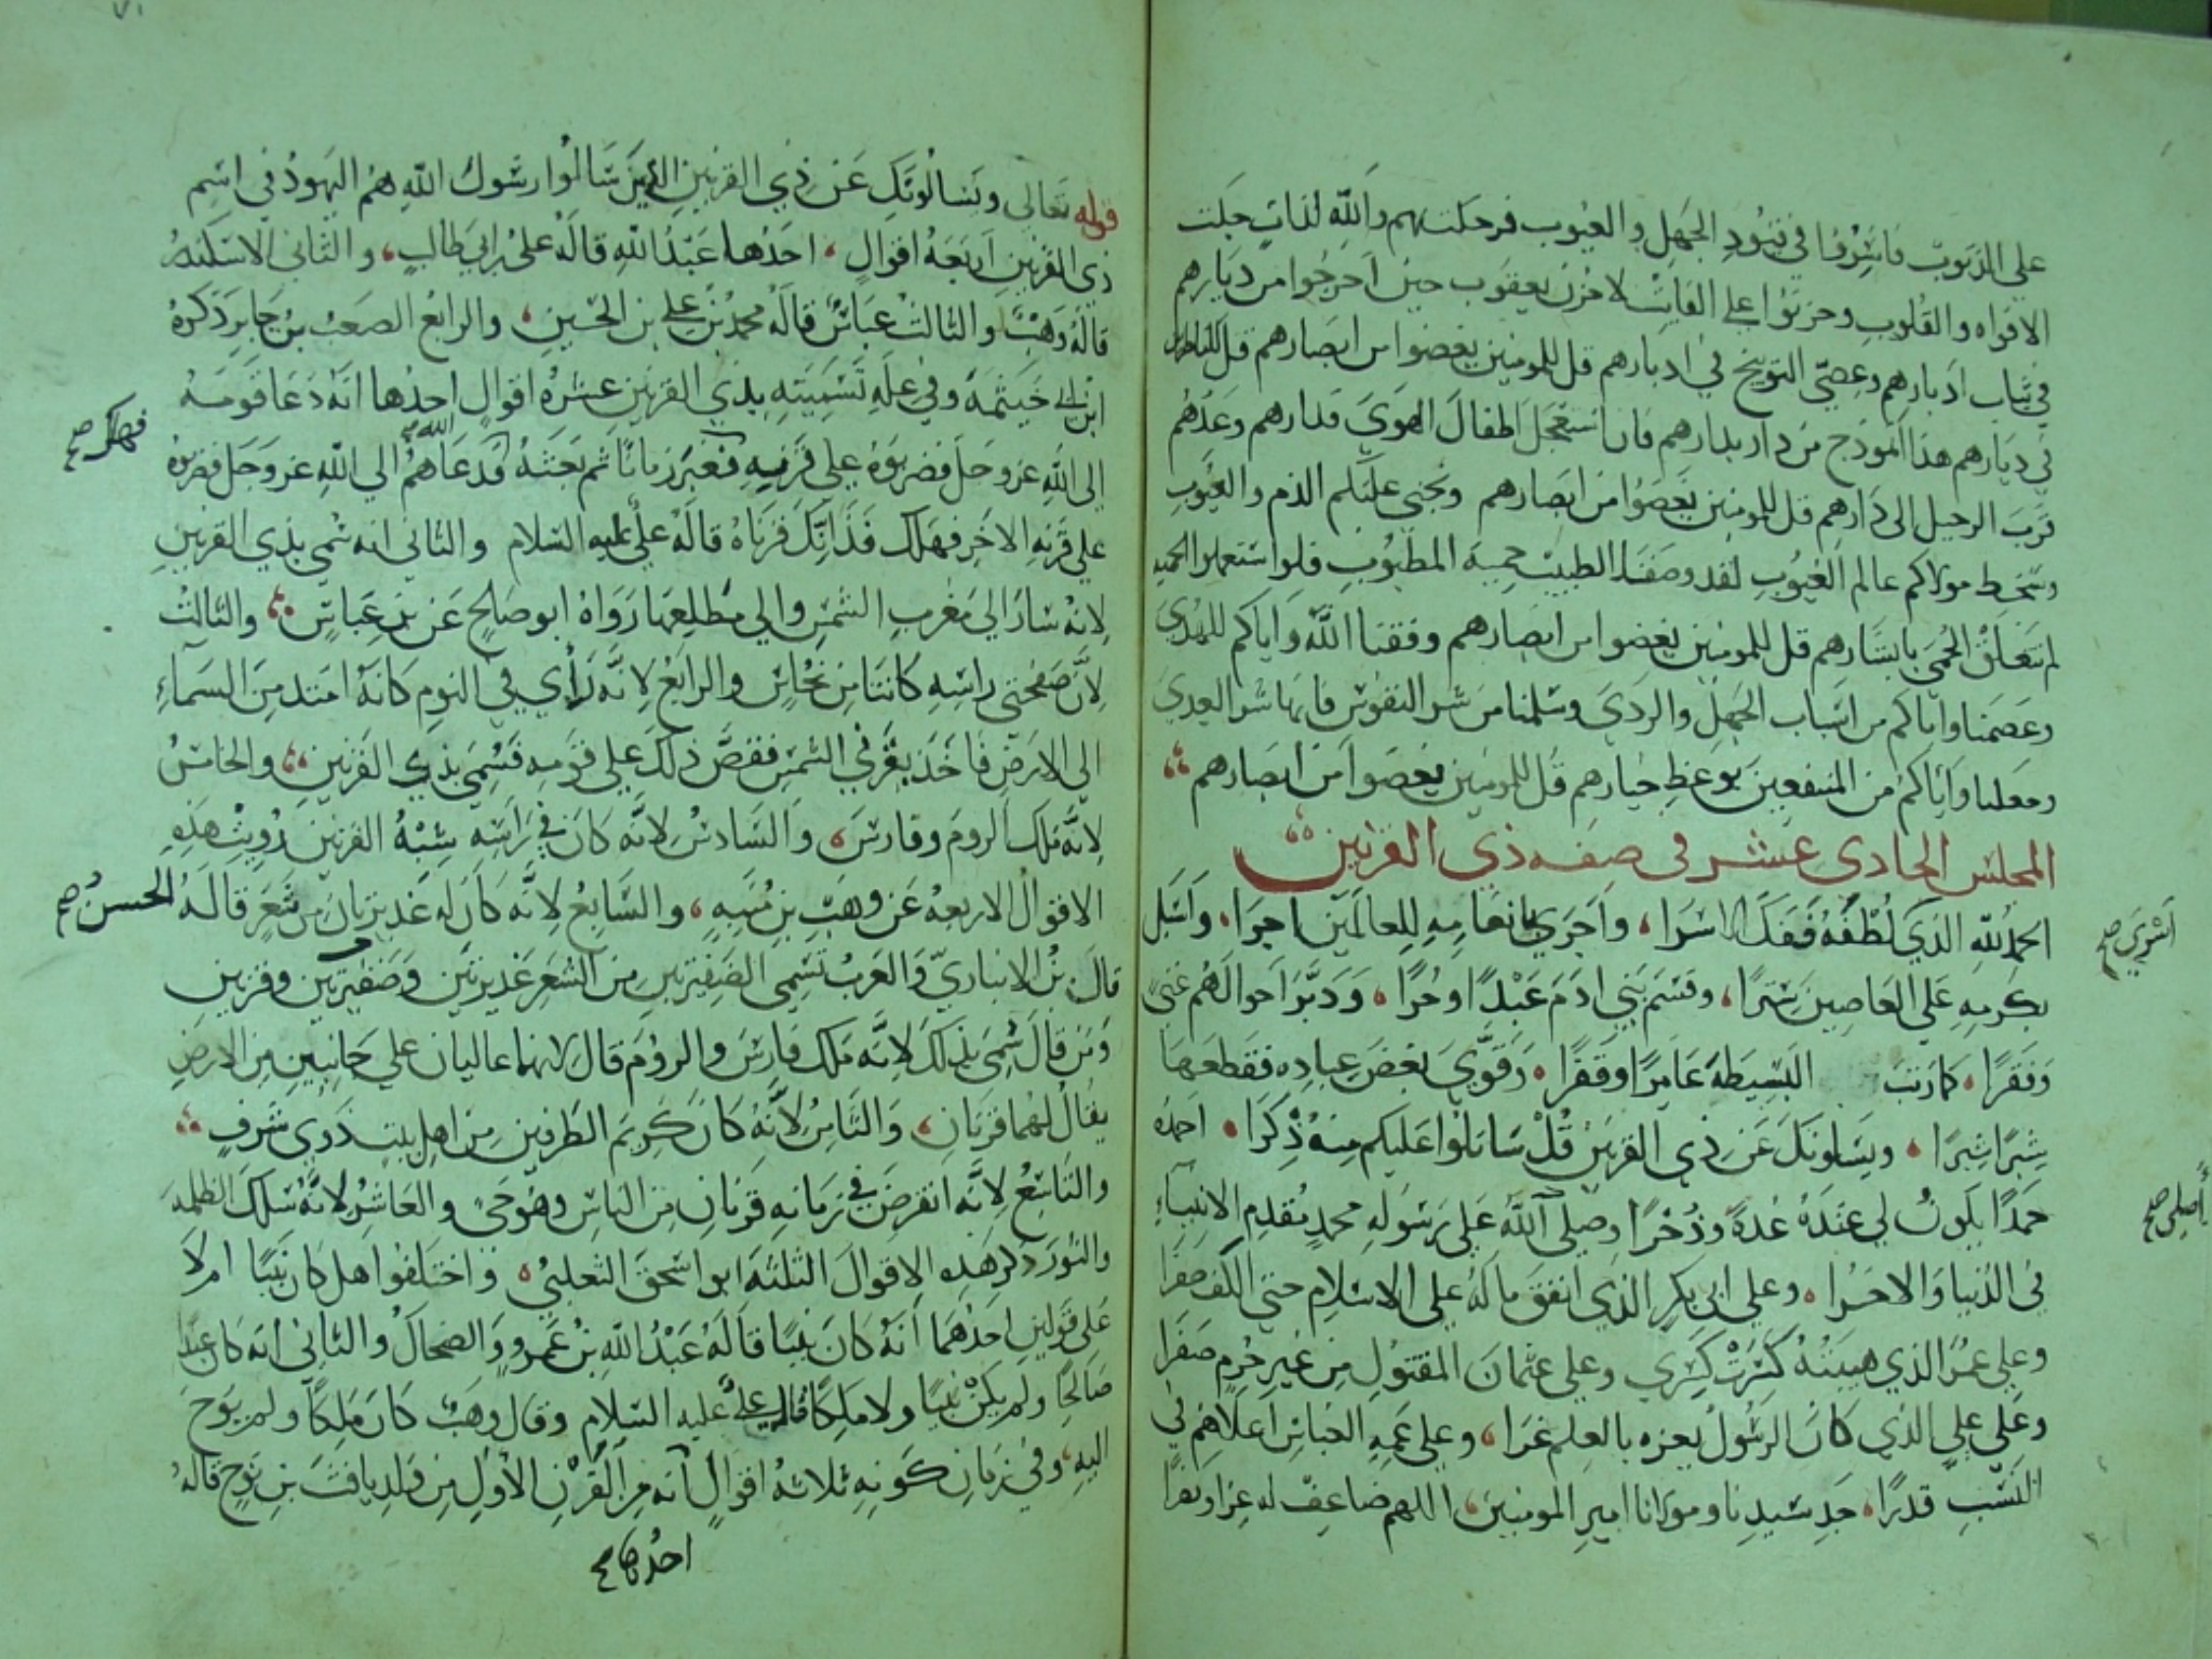 على الذنوب فاسرفا في قيود الجهل والعيوب فرحلت بهم والله لذات حلت
الافواه والقلوب وحزنوا على الفايت لا حزن يعقوب حين اخرجوا من ديارهم
في ثياب ادبارهم وعصي التوبيخ في ادبارهم قل للمومنين يغضوا من ابصارهم قل
في ديارهم هذا انموذج من دار بدارهم فان استعجل اطفال الهوى فدارهم وعدهم
قرب الرحيل الى دارهم قل للمومنين يغضوا من ابصارهم ويحنى عليكم الذم والعيوب
وسخط مولاكم عالم الغيوب لقد وصف الطبيب حمية المطبوب فلو استعملوا الحمية
لم تتعلق الحمى بابشارهم قل للمومنين يغضوا من ابصارهم وفقنا الله واياكم للهدى
وعصمنا واياكم من اسباب الجهل والردى وسلمنا من شر النفوس فانها شر العدى
وجعلنا واياكم من المنتفعين بوعظ خيارهم قل للمومنين يغضوا من ابصارهم
المجلس الحادي عشر في صفه ذي القرنين
الحمد لله الذي لُطْفُهُ فَفَكَّ اسرا، وَاَجرى بانعامِهِ للعالَمين اجرا، واسبل
اسرى صح
بكرمِهِ عَلى العَاصِينَ سِترًا، وقسم بَني ادَمَ عَبْدًا وحُرًّا، وَدَبَّرَ احوالَهُم غنىً
وَفَقرًا، كما رتب البَسِيطَة عَامِرًا وَقفرًا، وَقَوَّى بَعضَ عِبادِه فقطعَها
شِبرًا شِبرًا، ويَسَلونكَ عَن ذي القرنين قُلْ سَاتلوا عَليكم مِنهُ ذِكرًا، احمدُه
حَمدًا يكونُ لي عِندَهُ عُدةً وَذُخرًا وصلى اللهُ على رَسُولِه محمدٍ مُقدمِ الانبياءِ
أصلي صح
في الدُنيا وَالاخرا، وعلى ابي بكرٍ الذي انفق ماله على الاسلام حتى الكف صفرا
وعلى عمرَ الذي هيبتُهُ كسَرَتْ كِسرى وعلى عثمانَ المقتولِ مِن غيرِ جُرمٍ صَبرا
وعَلى علي الذي كانَ الرسُولُ يعزه بالعلمِ غَرا، وعلى عمهِ العَباسِ اعلاهُم في
النسَبِ قدرًا، جد سَيدِنا ومولانا اميرِ المومنين اللهم ضاعِف له عِزا ونصرًا
قوله تعالى ويَسالُونَكَ عَن ذِي القرنينِ الذينَ سَالُوا رسُول اللهِ هُم اليَهودُ في اسمِ
ذي القرنينِ اَربَعَة اقوالٍ، احَدُها عَبدُ اللهِ قالَهُ علىُ بن ابي طالبٍ، والثاني الاسكندر
قالَهُ وَهبٌ والثالث عباس قالهُ محمدُ بن علي بن الحسينِ، والرابعُ الصعب بن جابِر ذكرهُ
ابن ابي خَيثمَة وفي علةِ تَسميَتهِ بذي القرنين عشرة اقوالٍ احدُها انَّهُ دَعَا قومَهُ
الى اللهِ عز وجَل فضربوهُ على قرنِهِ فغبر زمانًا ثم بَعَثهُ الله فدعَاهُمُ الي اللهِ عز وجَل فضربوه
فهلك صح
علي قرنهِ الاخر فهَلك فذانِكَ قرناهُ قالَهُ علىٌ عليه السَلام والثاني انه سُمي بذي القرنينِ
لانه سَارَ الى مَغرب الشمسِ والى مَطلعِها رَوَاهُ ابو صَالحٍ عَن بن عِباسٍ، والثالثُ
لِأنَّ صَفحتي راسِهِ كانتا من نُحاسٍ والرابعُ لانَّه رأى في النومِ كَانَّهُ امتد منَ السَماءِ
الى الارَضِ فاخَذ بقَرني الشمسِ فقصَّ ذلكَ على قومِهِ فَسُمى بذي القرنينِ، والخامسُ
لانَّه مَلك الرومَ وفارسَ، والسَّادسُ لانَّه كانَ في رَاسِهِ شِبْهُ القرنين رُويت هَذهِ
الاقوال الاربعة عَن وَهَبِ بن مُنبهٍ، والسَّابعُ لانَّه كانَ له غديرتان من شعَرٍ قالَهُ الحسنُ صح
قال بنُ الانباريّ والعَربُ تسمي الضفيرتينِ مِن الشَعر غديرتين وضفيرتين وقرنين
ومَن قالَ سُمى بذلك لانَّه مَلك فارسَ والروُمَ قال لانهما عاليان علي جانبينِ من الارضِ
يقالُ لهُما قرنانِ، وَالثامِنُ لانَّهُ كانَ كريمَ الطَرفينِ مِن اهلِ بيت ذَوِى شرفٍ
والتاسعُ لانَّه انقرضَ في زمَانهِ قرنانِ مِن الناسِ وهوَ حَىٌ والعَاشِرُ لانَّهُ سَلكَ الظلمة
والنور ذكر هَذِه الاقوالَ الثلثَة ابوا سحقَ الثعلبىُ، واختَلفوا هل كان نبيًا ام لا
على قولينِ احَدُهُما اَنَّهُ كانَ نبيًا قالَهُ عَبْدُ اللهِ بنُ عَمروٍ وَالضحاكُ والثاني انه كان عبدًا
صَالحًا ولم يكُنْ نبيًا ولا ملِكًا قاله عليٌ عليهِ السَلام وقال وهَبٌ كان مَلِكًا ولم يُوحَ
اليهِ، وفي زمانِ كونِهِ ثلاثهُ اقوالٍ انه مِن القَرْنِ الأولِ مِن وَلدِ يافثَ بنِ نوحٍ قالَهُ
احدُها صح